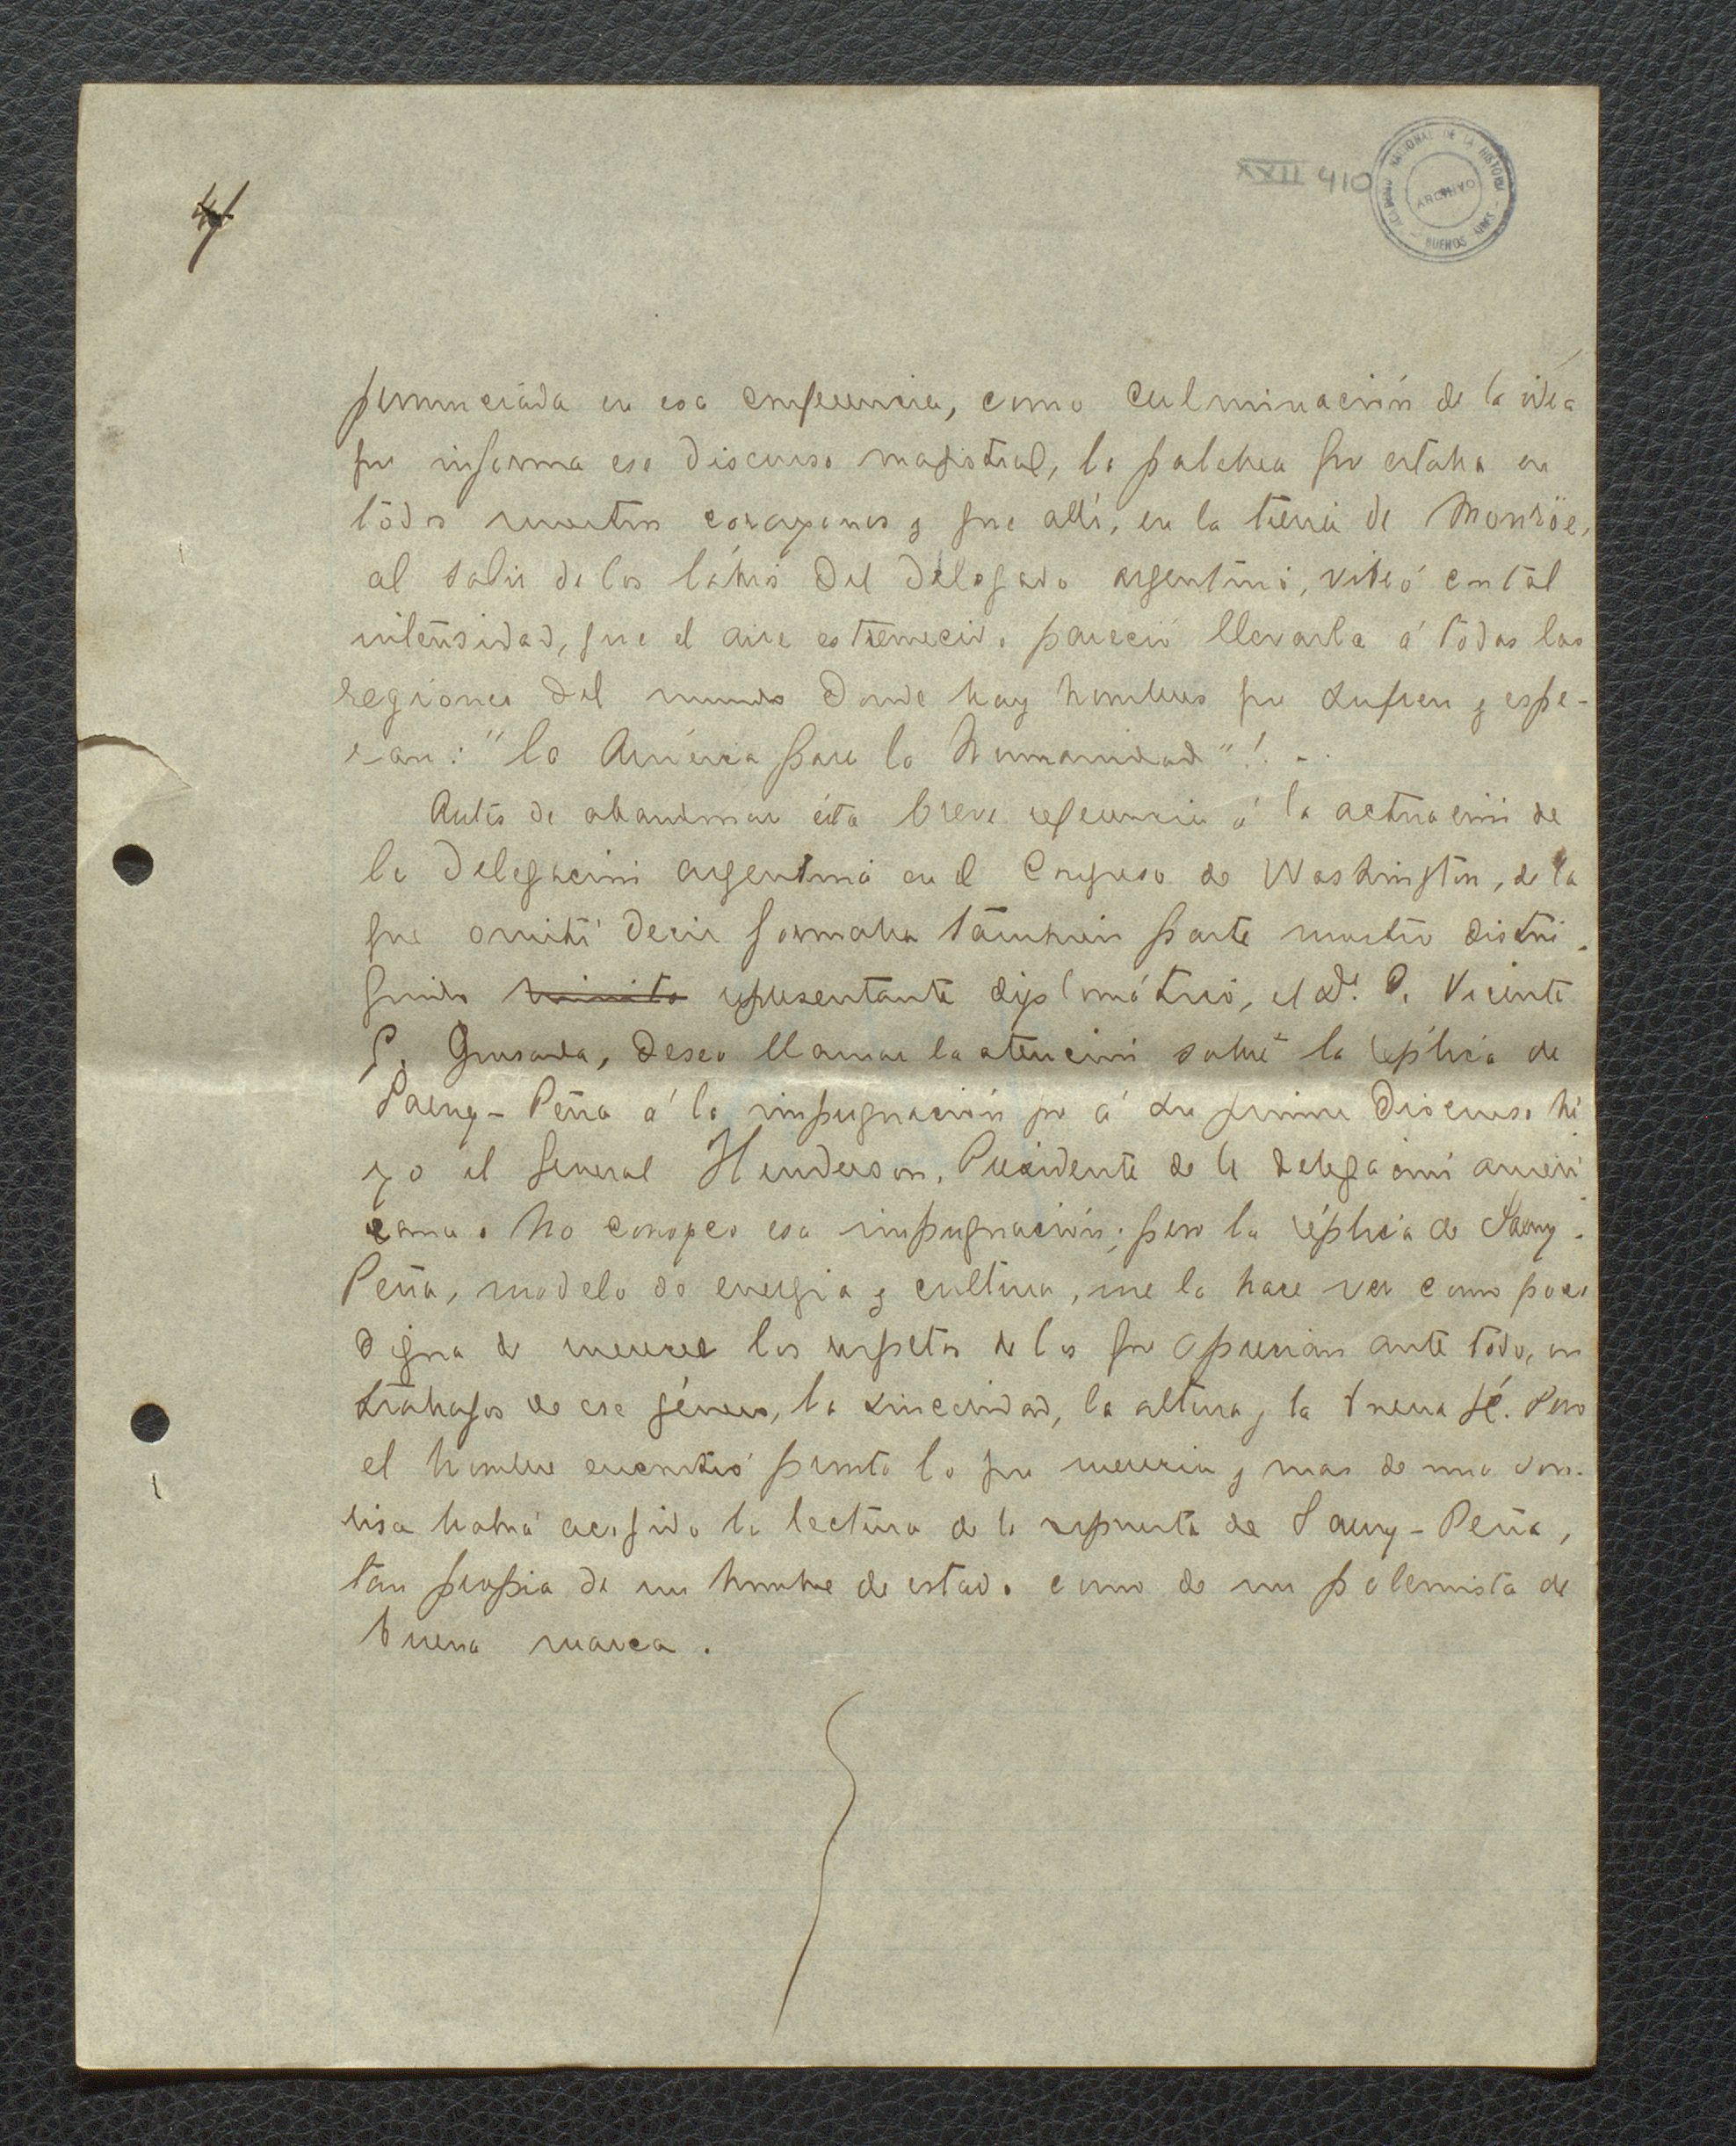 XXII 410
ACADEMIA NACIONAL DE LA HISTORIA
ARCHIVO
BUENOS AIRES
pronunciada en esa conferencia, como culminación de la idéa
que informa ese discurso magistral, la palabra que estaba en
todos nuestros corazones y que allí, en la tierra de Monröe,
al salir de los lábios del delegado argentino, vibró con tal
intensidad, que el aire estremecido pareció llevarla á todas las
regiones del mundo donde hay hombres que sufren y espe-
ran: "la América para la humanidad"! ..
Antes de abandonar ésta breve referencia á la actuación de
la delegación argentina en el Congreso de Washington, de la
que omití decir formaba también parte nuestro distin-
guido ministro representante diplomático, el Dr. D. Vicente
G. Quesada, deseo llamar la atención sobre la réplica de
Saenz-Peña á la impugnación que á su primer discurso hi
zo el general Henderson, Presidente de la delegación ameri
cana. No conozco esa impugnación; pero la réplica de Saenz-
Peña, modelo de energia y cultura, me la hace ver como poco
digna de merecer los respetos de los que aprecian ante todo, en
trabajos de ese género, la sinceridad, la altura y la buena fé. Pero
el hombre encontró pronto lo que merecia y mas de una son-
risa habrá acogido la lectura de la respuesta de Saenz-Peña,
tan propia de un hombre de estado como de un polemista de
buena marca.